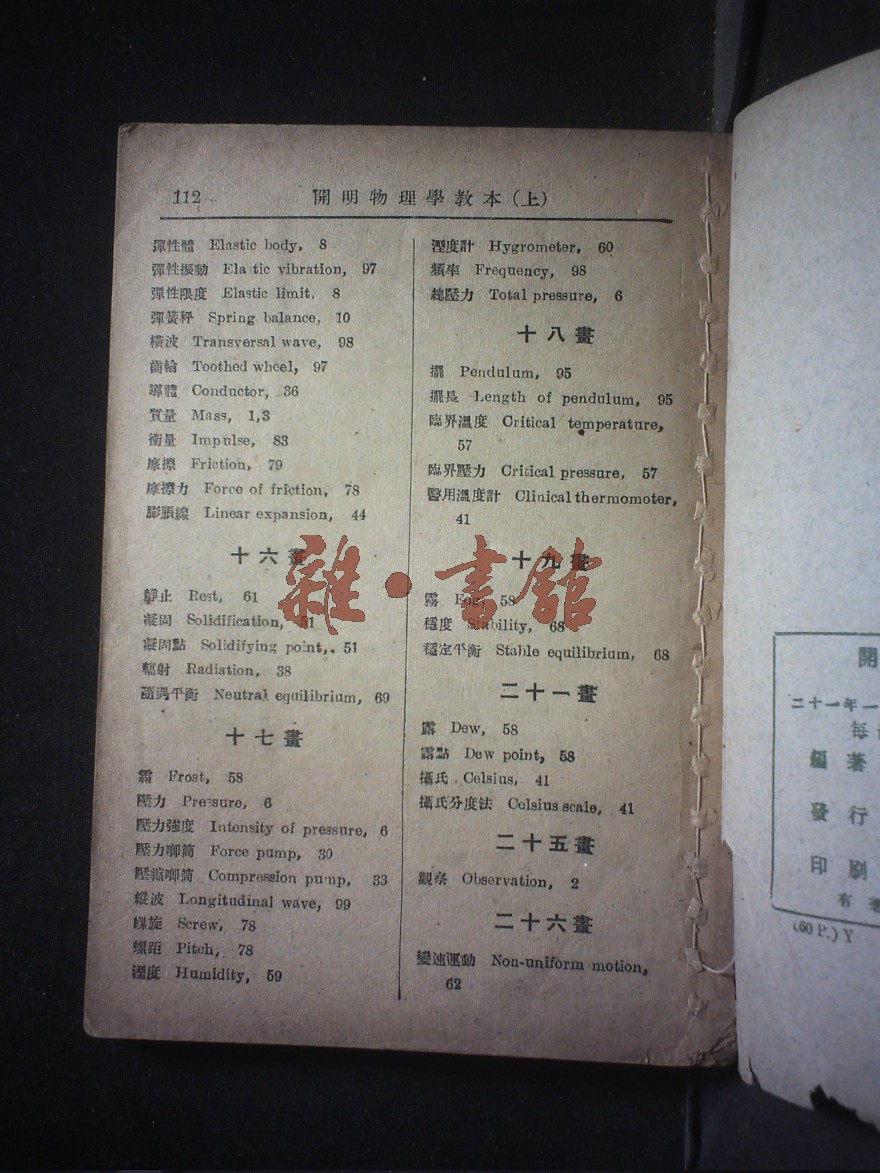 112
開明物理學教本(上)
彈性體 Elastic body, 8
彈性振動 Ela tic vibration, 97
彈性限度 Elastic limit, 8
彈簧秤 Spring balance, 10
橫波 Transversal wave, 98
齒輪 Toothed wheel, 97
導體 Conductor, 36
質量 Mass, 1,3
衝量 Impulse, 83
摩擦 Friction, 79
摩擦力 Force of friction, 78
膨脹線 Linear expansion, 44
十六畫
靜止 Rest, 61
凝固 Solidification, 51
凝固點 Solidifying point,. 51
輻射 Radiation, 38
隨遇平衡 Neutral equilibrium, 69
十七畫
霜 Frost, 58
壓力 Pressure, 6
壓力強度 Intensity of pressure, 6
壓力喞筒 Force pump, 30
壓縮喞筒 Compression pump, 33
縱波 Longitudinal wave, 99
螺旋 Screw, 78
螺距 Pitch, 78
溼度 Humidity, 59
溼度計 Hygrometer, 60
頻率 Frequency, 98
總壓力 Total pressure, 6
十八畫
擺 Pendulum, 95
擺長 Length of pendulum, 95
臨界溫度 Critical temperature,
57
臨界壓力 Critical pressure, 57
醫用溫度計 Clinical thermomoter,
41
十九畫
霧 Fog, 58
穩度 Stability, 68
穩定平衡 Stable equilibrium, 68
二十一畫
露 Dew, 58
露點 Dew point, 58
攝氏 Celsius, 41
攝氏分度法 Celsius scale, 41
二十五畫
觀察 Observation, 2
二十六畫
變速運動 Non-uniform motion,
62
雜·書館
開
二十一年一
每
編著
發行
印刷
有著
(60 P.) Y